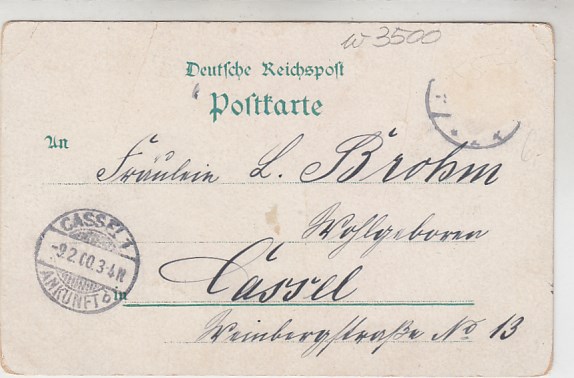 w 3500
Deutsche Reichspost
Postkarte
An
Fräulein L. Brohm
Wohlgeboren
CASSEL 1
-9.2.00.3-4N
ANKUNFT b
in Cassel
Weinbergstraße No 13